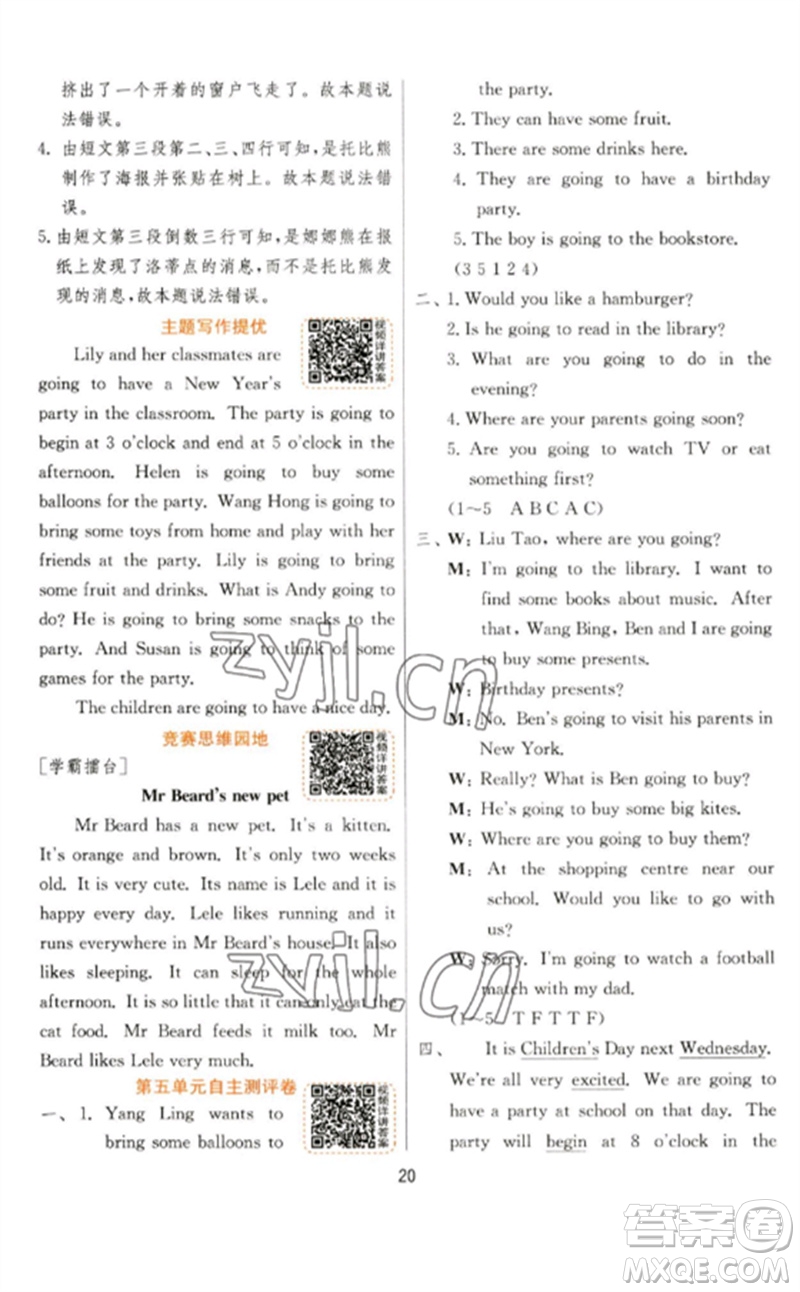 挤出了一个开着的窗户飞走了。故本题说
法错误。
4. 由短文第三段第二、三、四行可知,是托比熊
制作了海报并张贴在树上。故本题说法错
误。
5. 由短文第三段倒数三行可知,是娜娜熊在报
纸上发现了洛蒂点的消息,而不是托比熊发
现的消息,故本题说法错误。
主题写作提优
视频详讲答案
Lily and her classmates are
going to have a New Year's
party in the classroom. The party is going to
begin at 3 o'clock and end at 5 o'clock in the
afternoon. Helen is going to buy some
balloons for the party. Wang Hong is going to
bring some toys from home and play with her
friends at the party. Lily is going to bring
some fruit and drinks. What is Andy going to
do? He is going to bring some snacks to the
party. And Susan is going to think of some
games for the party.
The children are going to have a nice day.
竞赛思维园地
视频详讲答案
[学霸擂台]
Mr Beard's new pet
Mr Beard has a new pet. It's a kitten.
It's orange and brown. It's only two weeks
old. It is very cute. Its name is Lele and it is
happy every day. Lele likes running and it
runs everywhere in Mr Beard's house. It also
likes sleeping. It can sleep for the whole
afternoon. It is so little that it can only eat the
cat food. Mr Beard feeds it milk too. Mr
Beard likes Lele very much.
第五单元自主测评卷
视频详讲答案
一、1. Yang Ling wants to
bring some balloons to
the party.
2. They can have some fruit.
3. There are some drinks here.
4. They are going to have a birthday
party.
5. The boy is going to the bookstore.
(3 5 1 2 4)
二、1. Would you like a hamburger?
2. Is he going to read in the library?
3. What are you going to do in the
evening?
4. Where are your parents going soon?
5. Are you going to watch TV or eat
something first?
(1~5 A B C A C)
三、W: Liu Tao, where are you going?
M: I'm going to the library. I want to
find some books about music. After
that, Wang Bing, Ben and I are going
to buy some presents.
W: Birthday presents?
M: No. Ben's going to visit his parents in
New York.
W: Really? What is Ben going to buy?
M: He is going to buy some big kites.
W: Where are you going to buy them?
M: At the shopping centre near our
school. Would you like to go with
us?
W: Sorry. I'm going to watch a football
match with my dad.
(1~5 T F T T F)
四、 It is Children's Day next Wednesday.
We're all very excited. We are going to
have a party at school on that day. The
party will begin at 8 o'clock in the
20
zyjl.cn
zyjl.cn
答案卷
MXQE.COM